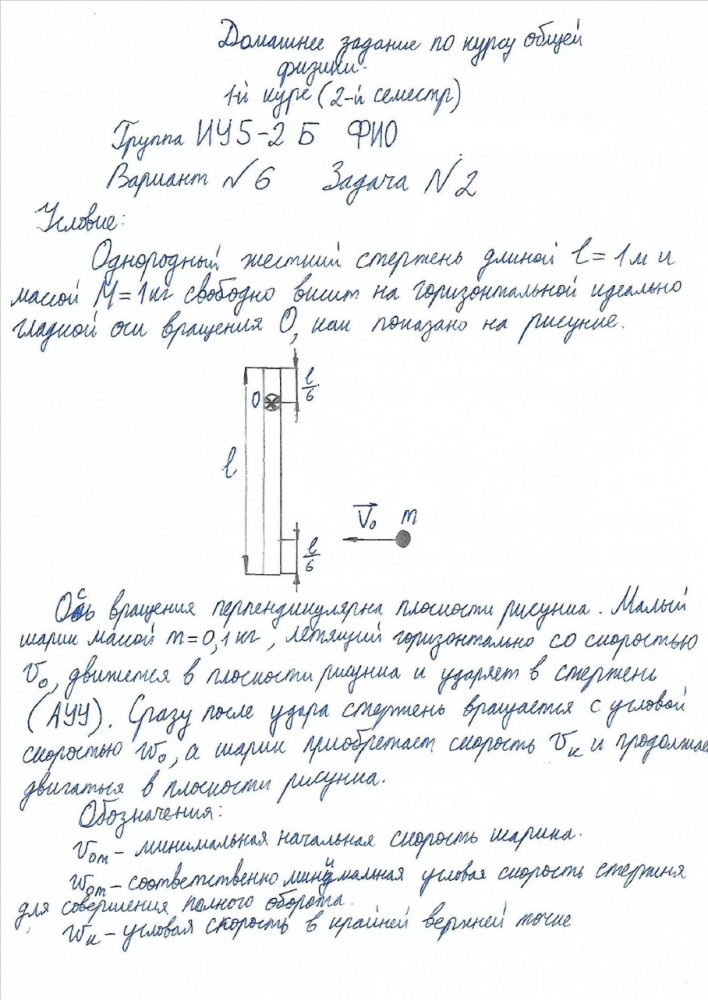 Домашнее задание по курсу общей
физики.
1-й курс (2-й семестр)
Группа ИУ5-2 Б ФИО
Вариант №6 Задача №2
Условие:
Однородный жесткий стержень длиной l = 1 м и
массой M = 1 кг свободно висит на горизонтальной идеально
гладкой оси вращения O, как показано на рисунке.
l/6
O
l
V₀ m
l/6
Ось вращения перпендикулярна плоскости рисунка. Малый
шарик массой m = 0,1 кг, летящий горизонтально со скоростью
V₀, движется в плоскости рисунка и ударяет в стержень
(АУУ). Сразу после удара стержень вращается с угловой
скоростью ω₀, а шарик приобретает скорость Vк и продолжае
двигаться в плоскости рисунка.
Обозначения:
V₀m – минимальная начальная скорость шарика.
ω₀m – соответственно минимальная угловая скорость стержня
для совершения полного оборота.
ωк – угловая скорость в крайней верхней точке